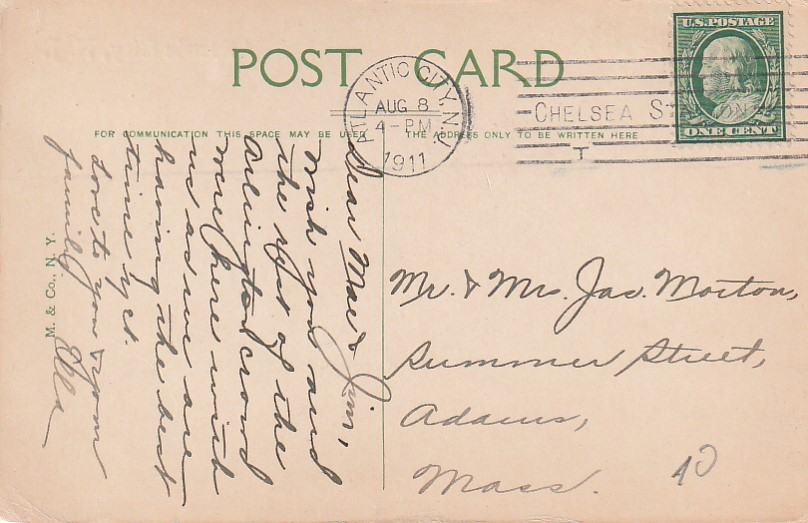 POST CARD
ATLANTIC CITY, N.J.
AUG 8
4-PM
1911
CHELSEA STATION
T
U.S. POSTAGE
ONE CENT
FOR COMMUNICATION THIS SPACE MAY BE USED
THE ADDRESS ONLY TO BE WRITTEN HERE
Dear Mae & Jim,
Wish you and
the rest of the
Arlington crowd
were here with
us as we are
having the best
time yet.
Love to you & your
family
Ella
M. & Co., N. Y.
Mr. & Mrs. Jas. Morton,
Summer Street,
Adams,
Mass.
10